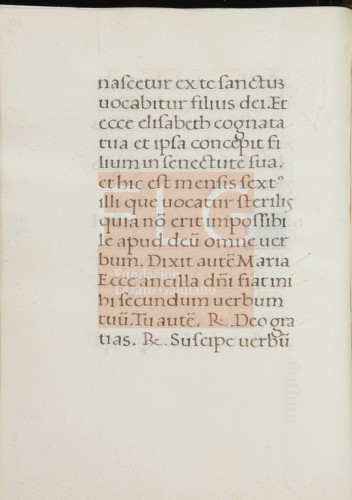 nascetur ex te sanctuƷ
uocabitur filius dei. Et
ecce elisabeth cognata
tua et ipsa concepit fi
lium in senectute sua.
et hic est mensis sextꝰ
illi que uocatur sterilis
quia nõ erit impossibi
le apud deũ omne uer
bum. Dixit autẽ Maria
Ecce ancilla dñi fiat mi
hi secundum uerbum
tuũ. Tu autẽ. ℞. Deo gra
tias. ℞. Suscipe uerbũ
FLG
Fundación
Lázaro Galdiano